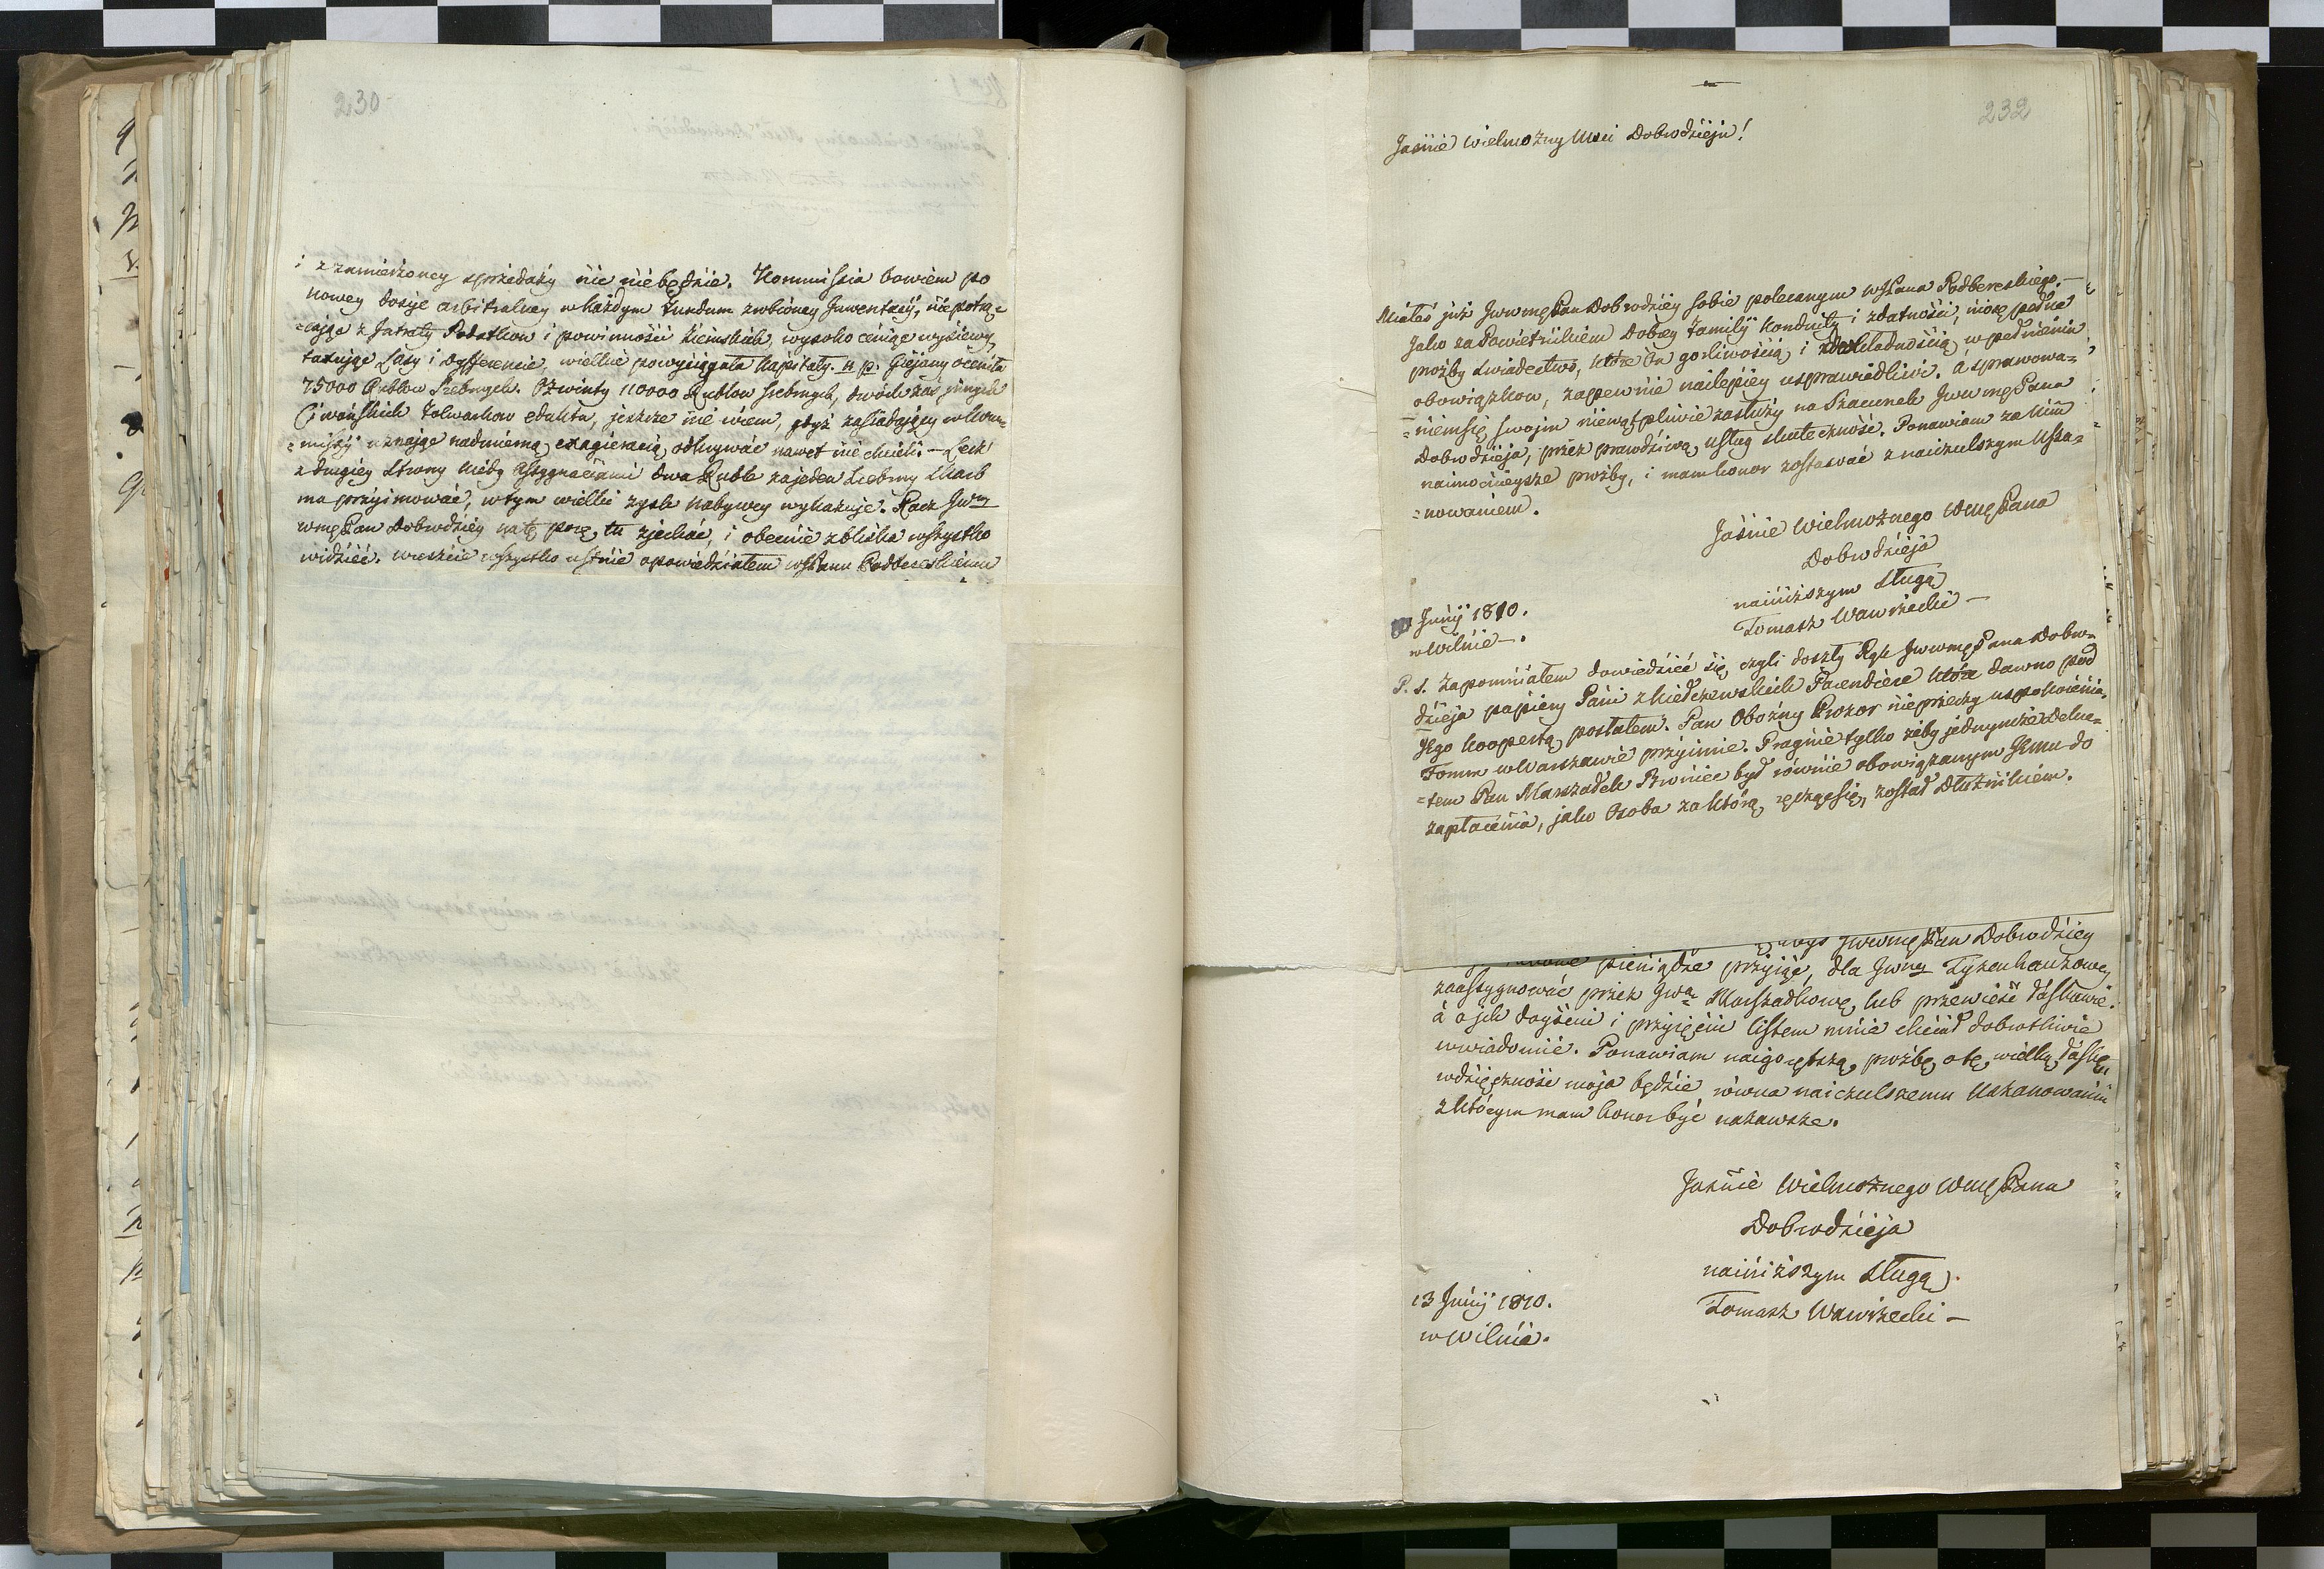 230
i z zamierzoney sprzedaży nic niebędzie. Kommissia bowiem po
nowey dosyć arbitralney w każdym Fundum zrobioney Inwentacyi, nie potrą=
=cając z Intraty Podatkow i powinności Ziemskich, wysoko ceniąc wysiewy,
taxując Lasy i Differencie, wielkie powyciągała Kapitały. n p. Giejany oceniła
75000 Rublow Srebrnych. Ożwinty 110000 Rublow srebrnych, dwóch zaś innych
Ciwańskich Folwarkow eduktu, jeszcze nie wiem, gdyż zasiadający w Kom=
=missyi uznając nadmierną exagieracią odkrywać nawet nie chcieli. — Lecz
z drugiey strony kiedy Assygnaciami dwa Ruble za jeden srebrny Skarb
ma przyimować, w tym wielki zysk nabywcy wykazuje. Racz Jwny
wmęPan Dobrodziey na tę porę tu zjechać, i obecnie zbliska wszystko
widzieć. wreszcie wszystko ustnie opowiedziałem wJPanu Podbereskiemu
232
Jaśnie Wielmożny Mci Dobrodzieju!
Miałeś już JwwmęPan Dobrodziey sobie polecanym wJPana Podbereskiego. —
Jako za Powietnikiem Dobrey Familij Konduity i zdatności, niosę pełne
proźby swiadectwo, które On gorliwością i dokładnością w pełnieniu
obowiązkow, zapewnie nailepiey usprawiedliwi. á sprawowa=
=niem się swoim niewątpliwie zasłuży na Szacunek JwwmęPana
Dobrodzieja, przez prawdziwą usług skuteczność. Ponawiam za nim
naimocnieysze proźby, i mam honor zostawać z naiczulszym Usza=
=nowaniem.
Jaśnie Wielmożnego WmęPana
Dobrodzieja
nainiższym sługą
Tomasz Wawrzecki —
Junij 1810.
w Wilnie —.
P. S. Zapomniałem dowiedzieć się, czyli doszły Rąk JwwmęPana Dobro=
dzieja papiery Pani z Kiedrzewskich Faiendiere które dawno pod
Jego koopertą posłałem. Pan Oboźny Prozor nieprzeczy uspokoienia,
Fomm w Warszawie przyimie. Pragnie tylko żeby jednymże Dekre=
=tem Pan Marszałek był równie obowiązanym Jemu do
zapłacenia, jako Osoba za którą, ręcząc się, został Dłużnikiem.
JwwmęPan Dobrodziey
pieniądze przyiąć, dla Jwney Tyzenhauzowey
zaassygnować przez Jwą Marszałkowę, lub przewieść łaskawie.
á o jch doyściu i przyięciu listem mnie chciał dobrotliwie
uwiadomić. Ponawiam naigorętszą proźbę o tę wielką łaskę,
wdzięczność moja będzie równa naiczulszemu Uszanowaniu
z którym mam honor być nazawsze.
Jaśnie Wielmożnego WmęPana
Dobrodzieja
nainiższym sługą
Tomasz Wawrzecki —
13 Junij 1810.
w Wilnie.